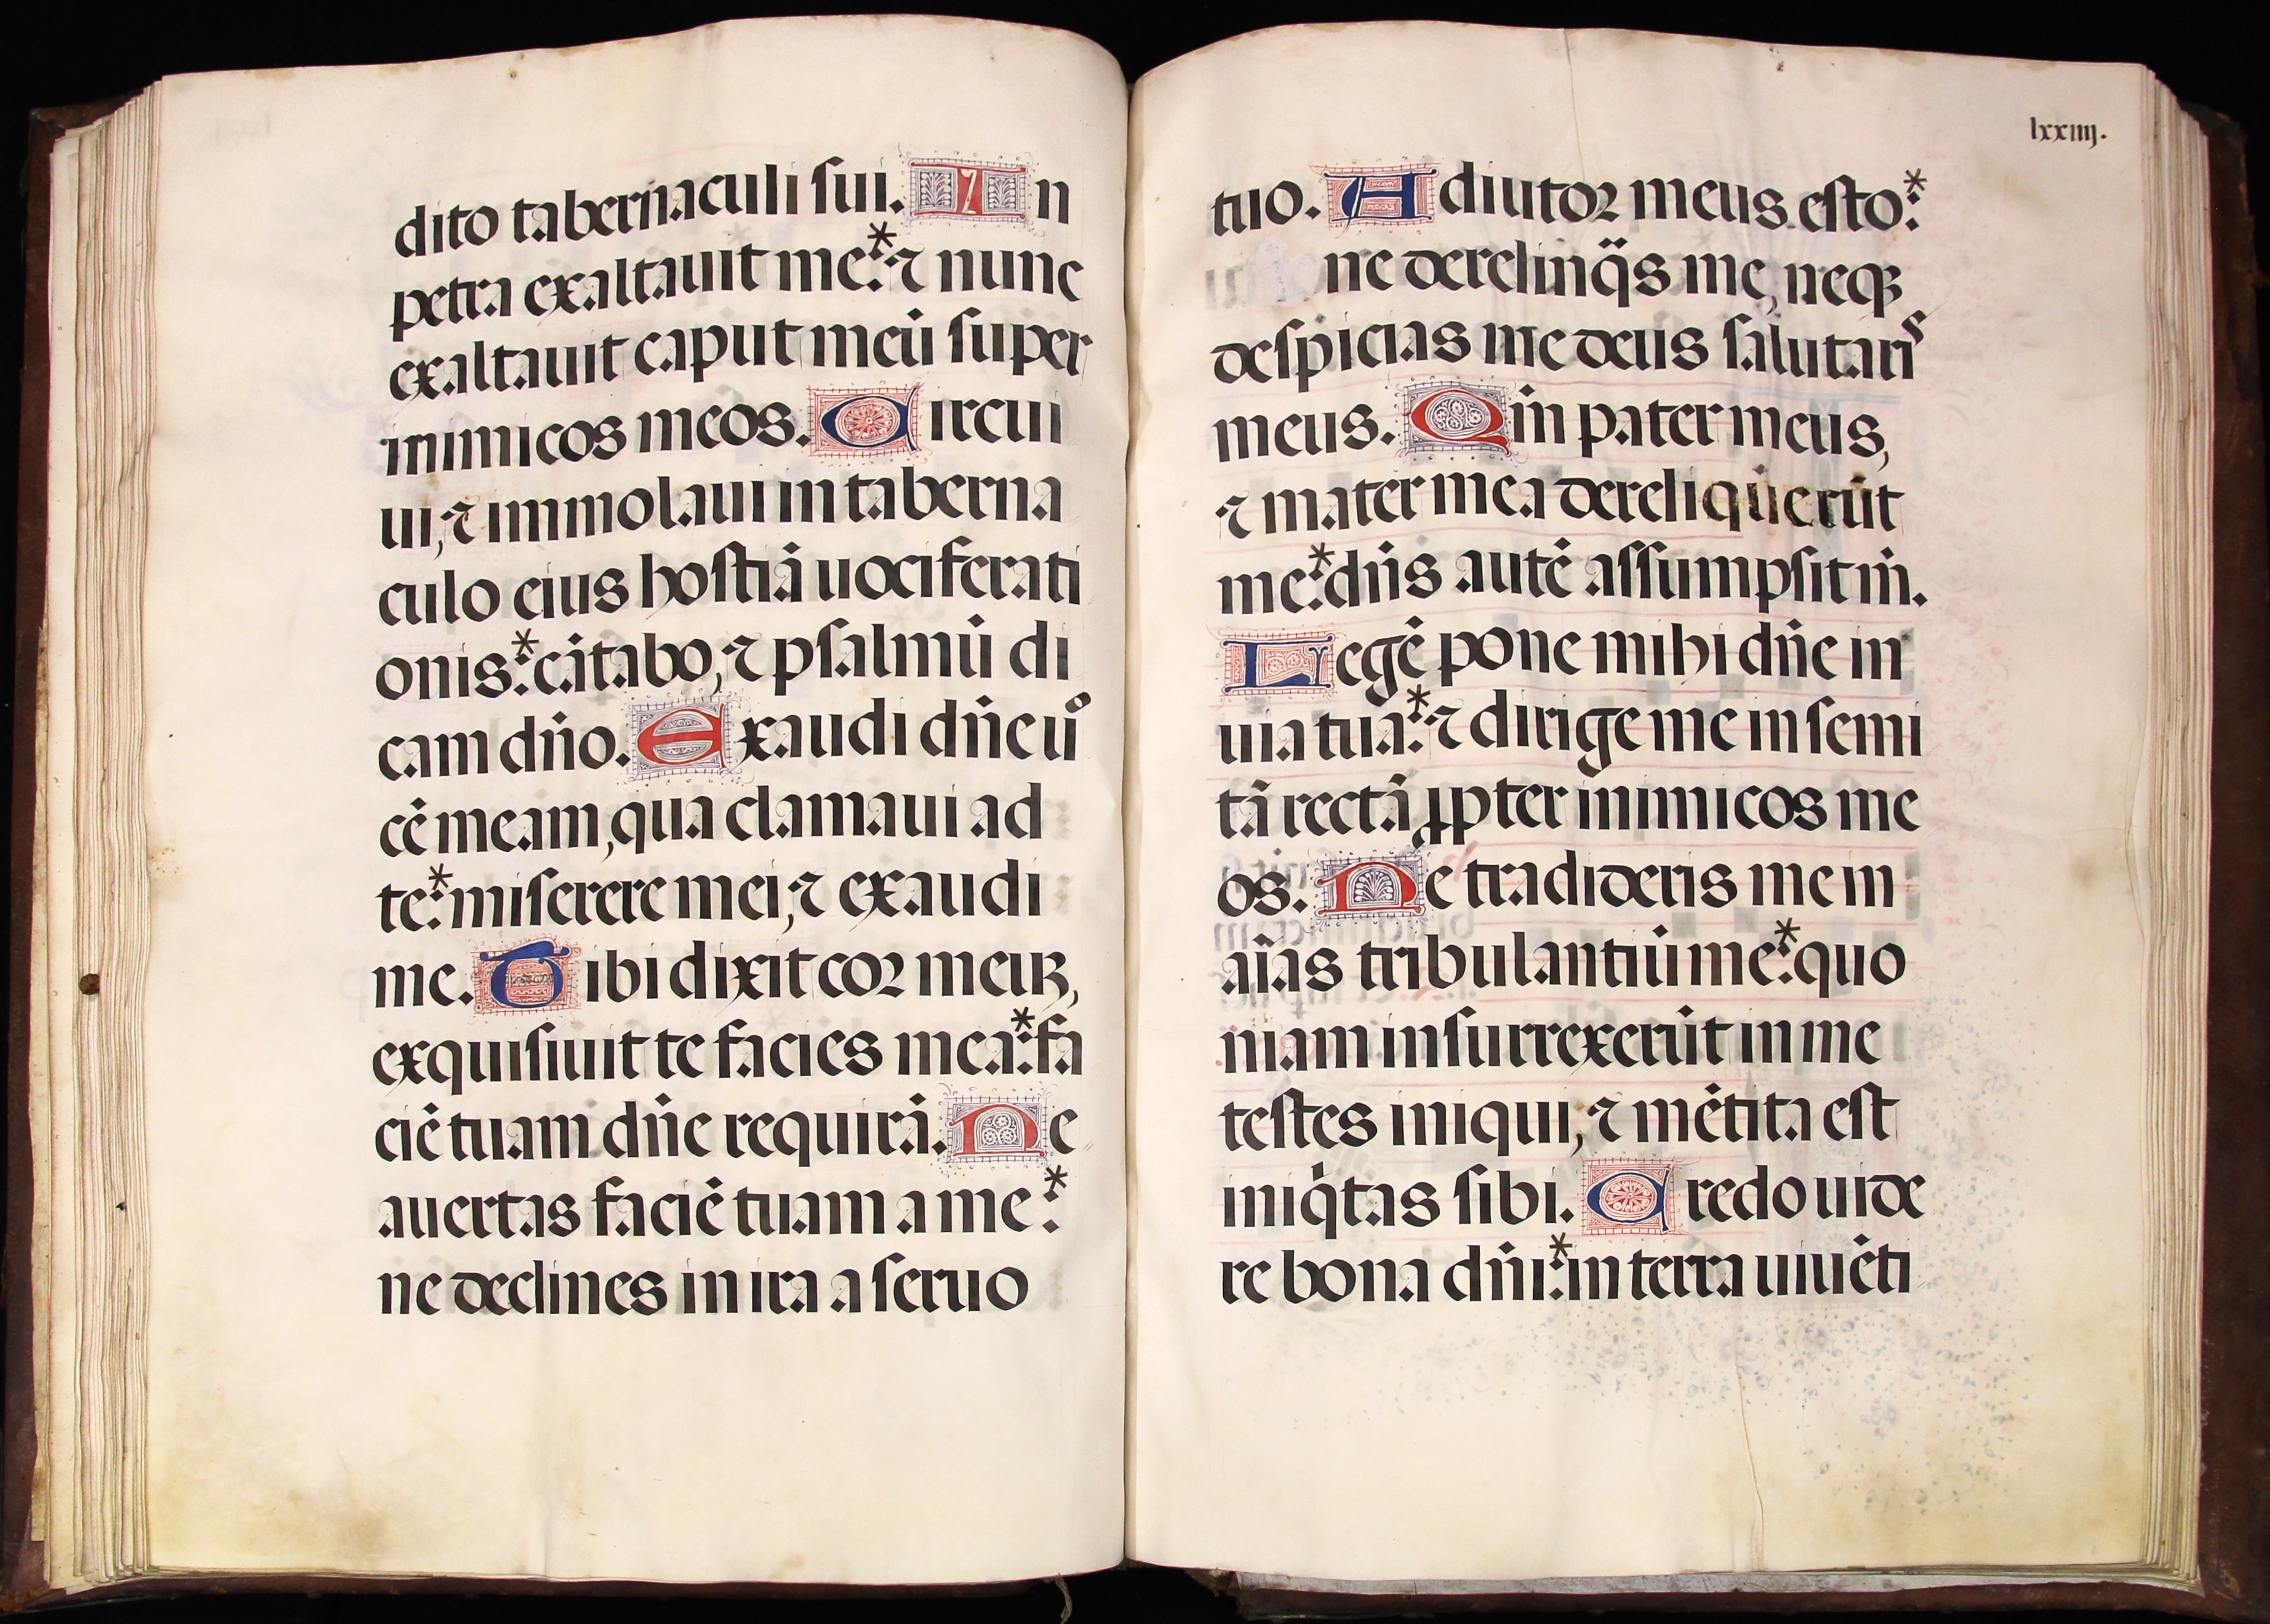 dito tabernaculi sui. In
petra exaltauit me:* ⁊ nunc
exaltauit caput meū super
inimicos meos. Circui
ui, ⁊ immolaui in taberna
culo eius hostiā uociferati
onis:* cātabo, ⁊ psalmū di
cam dño. Exaudi dñe uo
cē meam, qua clamaui ad
te:* miserere mei, ⁊ exaudi
me. Tibi dixit cor meuꝫ,
exquisiuit te facies mea:* fa
ciē tuam dñe requirā. Ne
auertas faciē tuam a me:*
ne declines in ira a seruo
lxxiiij.
tuo. Adiutor meus esto:*
ne derelinq̈s me, neqꝫ
despicias me deus salutaris
meus. Qm̄ pater meus,
⁊ mater mea dereliquerūt
me:* dñs autē assumpsit m̄.
Legē pone mihi dñe in
uia tua:* ⁊ dirige me in semi
tā rectā ꝓpter inimicos me
os. Ne tradideris me in
aīas tribulantiū me:* quo
niam insurrexerūt in me
testes iniqui, ⁊ mētita est
iniq̇tas sibi. Credo uide
re bona dñi:* in terra uiuēti